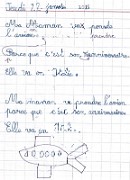 Jeudi 22 janvier
Ma Maman vas prendre
l'avion. prendre
Parce que c'est son anniversaire.
Elle va en Italie.
Ma maman va prendre l'avion
parce que c'est son anniversaire.
Elle va en